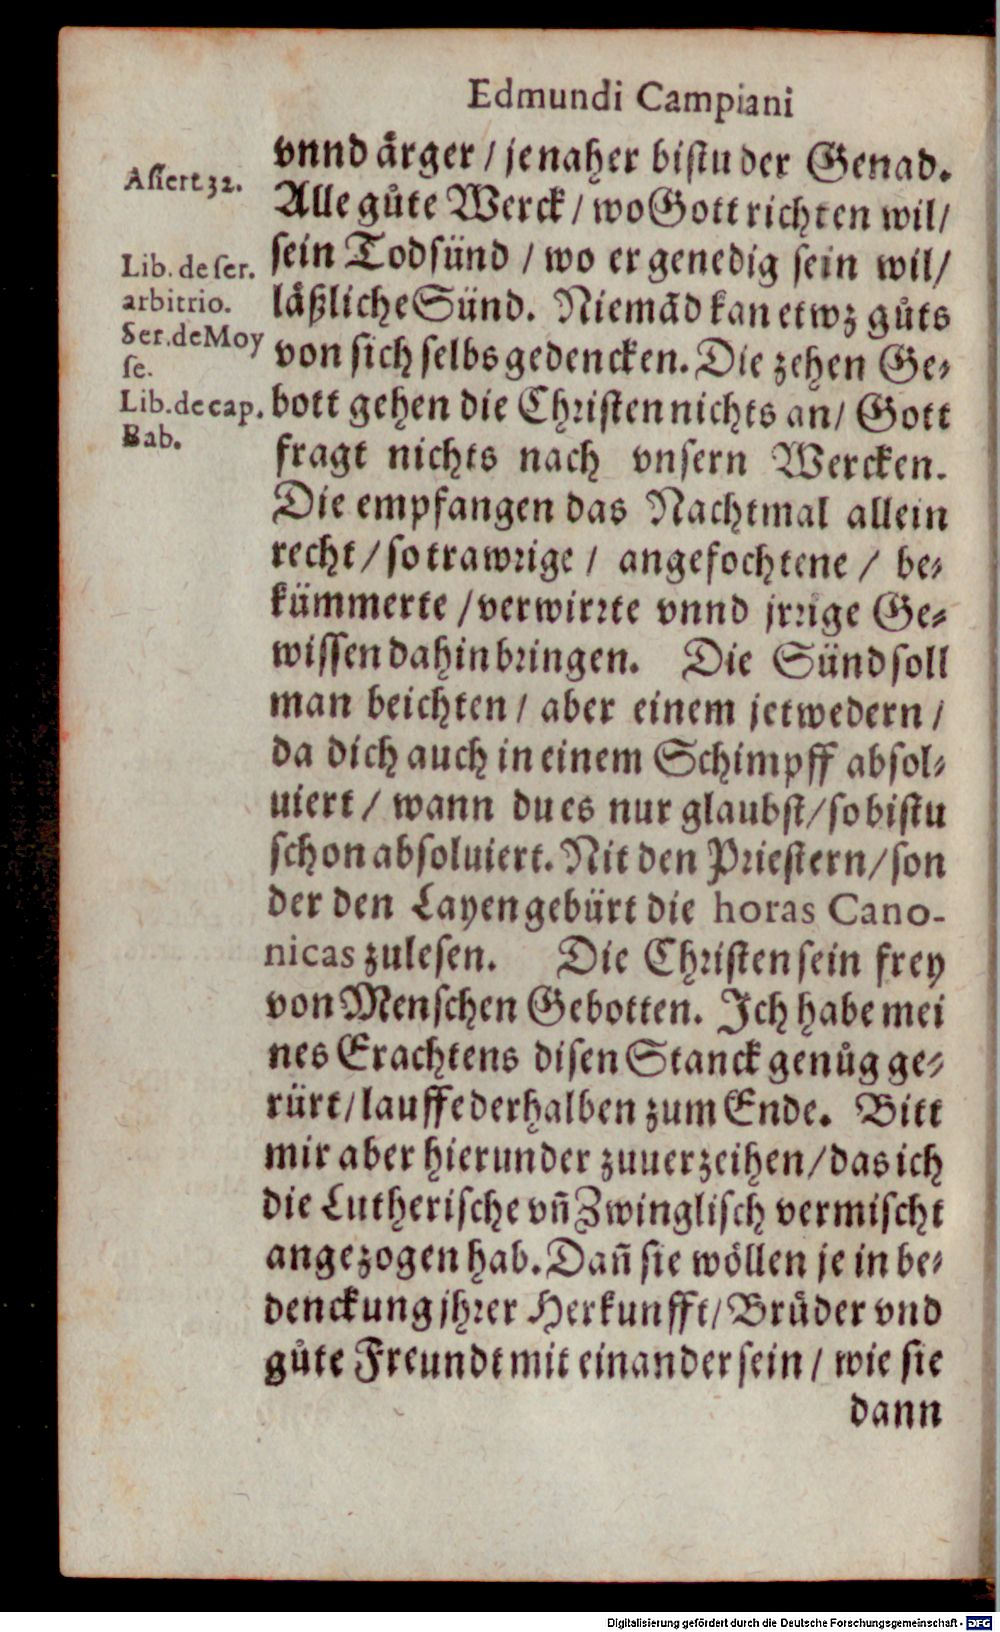 Edmundi Campiani
vnnd aͤrger / je naher bistu der Genad.
Assert 32.
Alle guͤte Werck / wo Gott richten wil /
sein Todsünd / wo er genedig sein wil /
Lib. de ser.
arbitrio.
laͤßliche Sünd. Niemād kan etwz guͤts
Ser. de Moy
se.
von sich selbs gedencken. Die zehen Ge-
Lib. de cap.
Bab.
bott gehen die Christen nichts an / Gott
fragt nichts nach vnsern Wercken.
Die empfangen das Nachtmal allein
recht / so trawrige / angefochtene / be-
kümmerte / verwirrte vnnd jrrige Ge-
wissen dahin bringen. Die Sünd soll
man beichten / aber einem jetwedern /
da dich auch in einem Schimpff absol-
uiert / wann du es nur glaubst / so bistu
schon absoluiert. Nit den Priestern / son
der den Layen gebürt die horas Cano-
nicas zulesen. Die Christen sein frey
von Menschen Gebotten. Ich habe mei
nes Erachtens disen Stanck genuͤg ge-
rürt / lauffe derhalben zum Ende. Bitt
mir aber hierunder zuuerzeihen / das ich
die Lutherische vñ Zwinglisch vermischt
angezogen hab. Dañ sie woͤllen je in be-
denckung jhrer Herkunfft / Bruͤder vnd
guͤte Freundt mit einander sein / wie sie
dann
Digitalisierung gefördert durch die Deutsche Forschungsgemeinschaft - DFG